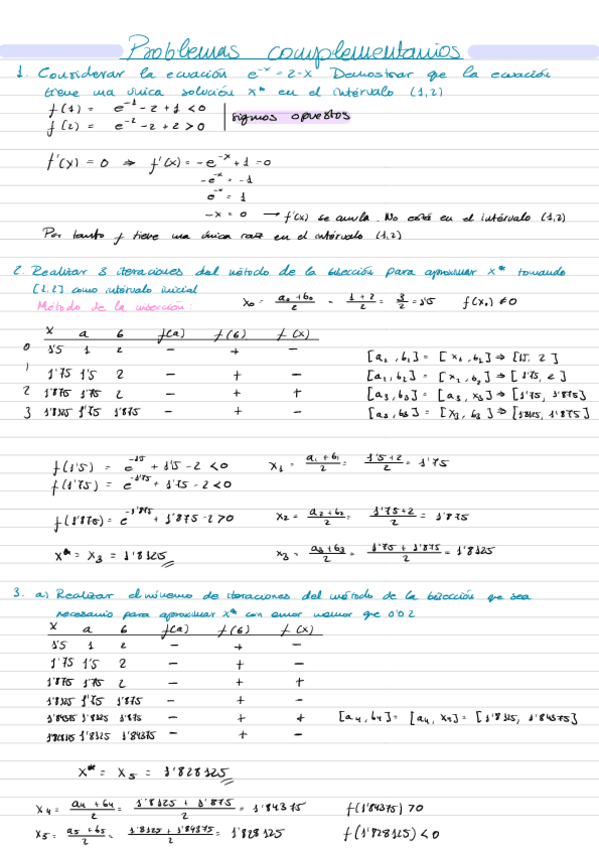 Problemas complementarios
1. Considerar la ecuación e^-x = 2-x Demostrar que la ecuación
tiene una única solución x* en el intérvalo (1,2)
f(1) = e^-1 - 2 + 1 < 0
f(2) = e^-2 - 2 + 2 > 0
signos opuestos
f'(x) = 0 ⇒ f'(x) = -e^-x + 1 = 0
-e^-x = -1
e^-x = 1
-x = 0 → f'(x) se anula. No está en el intérvalo (1,2)
Por tanto f tiene una única raíz en el intérvalo (1,2)
2. Realizar 3 iteraciones del método de la bisección para aproximar x* tomando
[1,2] como intérvalo inicial
Método de la bisección: x₀ = a₀+b₀/2 = 1+2/2 = 3/2 = 1'5 f(x₀) ≠ 0
x a b f(a) f(b) f(x)
0 1'5 1 2 - + - [a₁,b₁] = [x₁,b₁] ⇒ [1'5, 2]
1 1'75 1'5 2 - + - [a₂,b₂] = [x₂,b₂] ⇒ [1'75, 2]
2 1'875 1'75 2 - + + [a₃,b₃] = [a₃,x₃] ⇒ [1'75, 1'875]
3 1'8125 1'75 1'875 - + - [a₃,b₃] = [x₃,b₃] ⇒ [1'8125, 1'875]
f(1'5) = e^-1'5 + 1'5 - 2 < 0 x₁ = a₁+b₁/2 = 1'5+2/2 = 1'75
f(1'75) = e^-1'75 + 1'75 - 2 < 0
f(1'875) = e^-1'875 + 1'875 - 2 > 0 x₂ = a₂+b₂/2 = 1'75+2/2 = 1'875
x* = x₃ = 1'8125 x₃ = a₃+b₃/2 = 1'75+1'875/2 = 1'8125
3. a) Realizar el número de iteraciones del método de la bisección que sea
necesario para aproximar x* con error menor que 0'02
x a b f(a) f(b) f(x)
1'5 1 2 - + -
1'75 1'5 2 - + -
1'875 1'75 2 - + +
1'8125 1'75 1'875 - + -
1'84375 1'8125 1'875 - + + [a₄,b₄] = [a₄,x₄] = [1'8125, 1'84375]
1'828125 1'8125 1'84375 - + -
x* = x₅ = 1'828125
x₄ = a₄+b₄/2 = 1'8125+1'875/2 = 1'84375 f(1'84375) > 0
x₅ = a₅+b₅/2 = 1'8125+1'84375/2 = 1'828125 f(1'828125) < 0